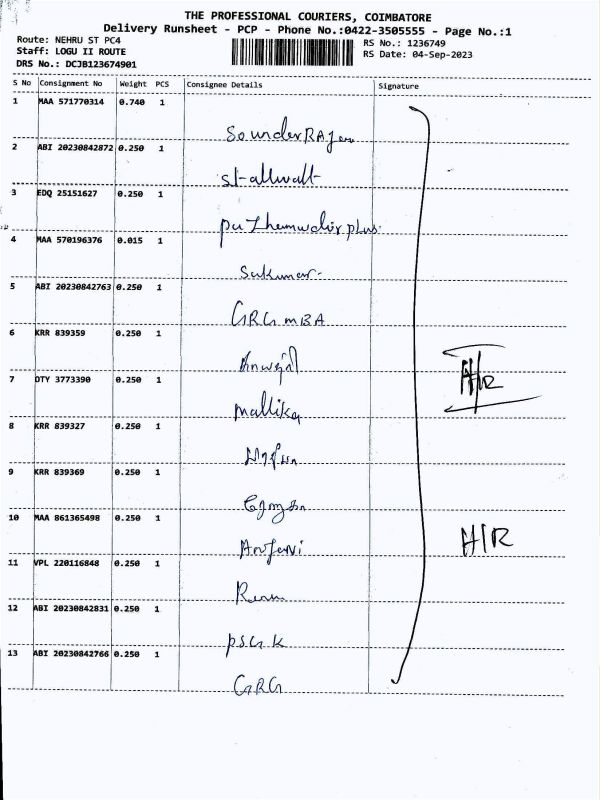 THE PROFESSIONAL COURIERS, COIMBATORE
Delivery Runsheet - PCP - Phone No.:0422-3505555 - Page No.:1
Route: NEHRU ST PC4
RS No.: 1236749
Staff: LOGU II ROUTE
RS Date: 04-Sep-2023
DRS No.: DCJB123674901
S No Consignment No Weight PCS Consignee Details Signature
1 MAA 571770314 0.740 1
2 ABI 20230842872 0.250 1
3 EDQ 25151627 0.250 1
4 MAA 570196376 0.015 1
Sukumar
5 ABI 20230842763 0.250 1
GRG MBA
6 KRR 839359 0.250 1
7 DTY 3773390 0.250 1
Mallika
8 KRR 839327 0.250 1
9 KRR 839369 0.250 1
10 MAA 861365498 0.250 1
11 VPL 220116848 0.250 1
12 ABI 20230842831 0.250 1
PSGK
13 ABI 20230842766 0.250 1
GRG